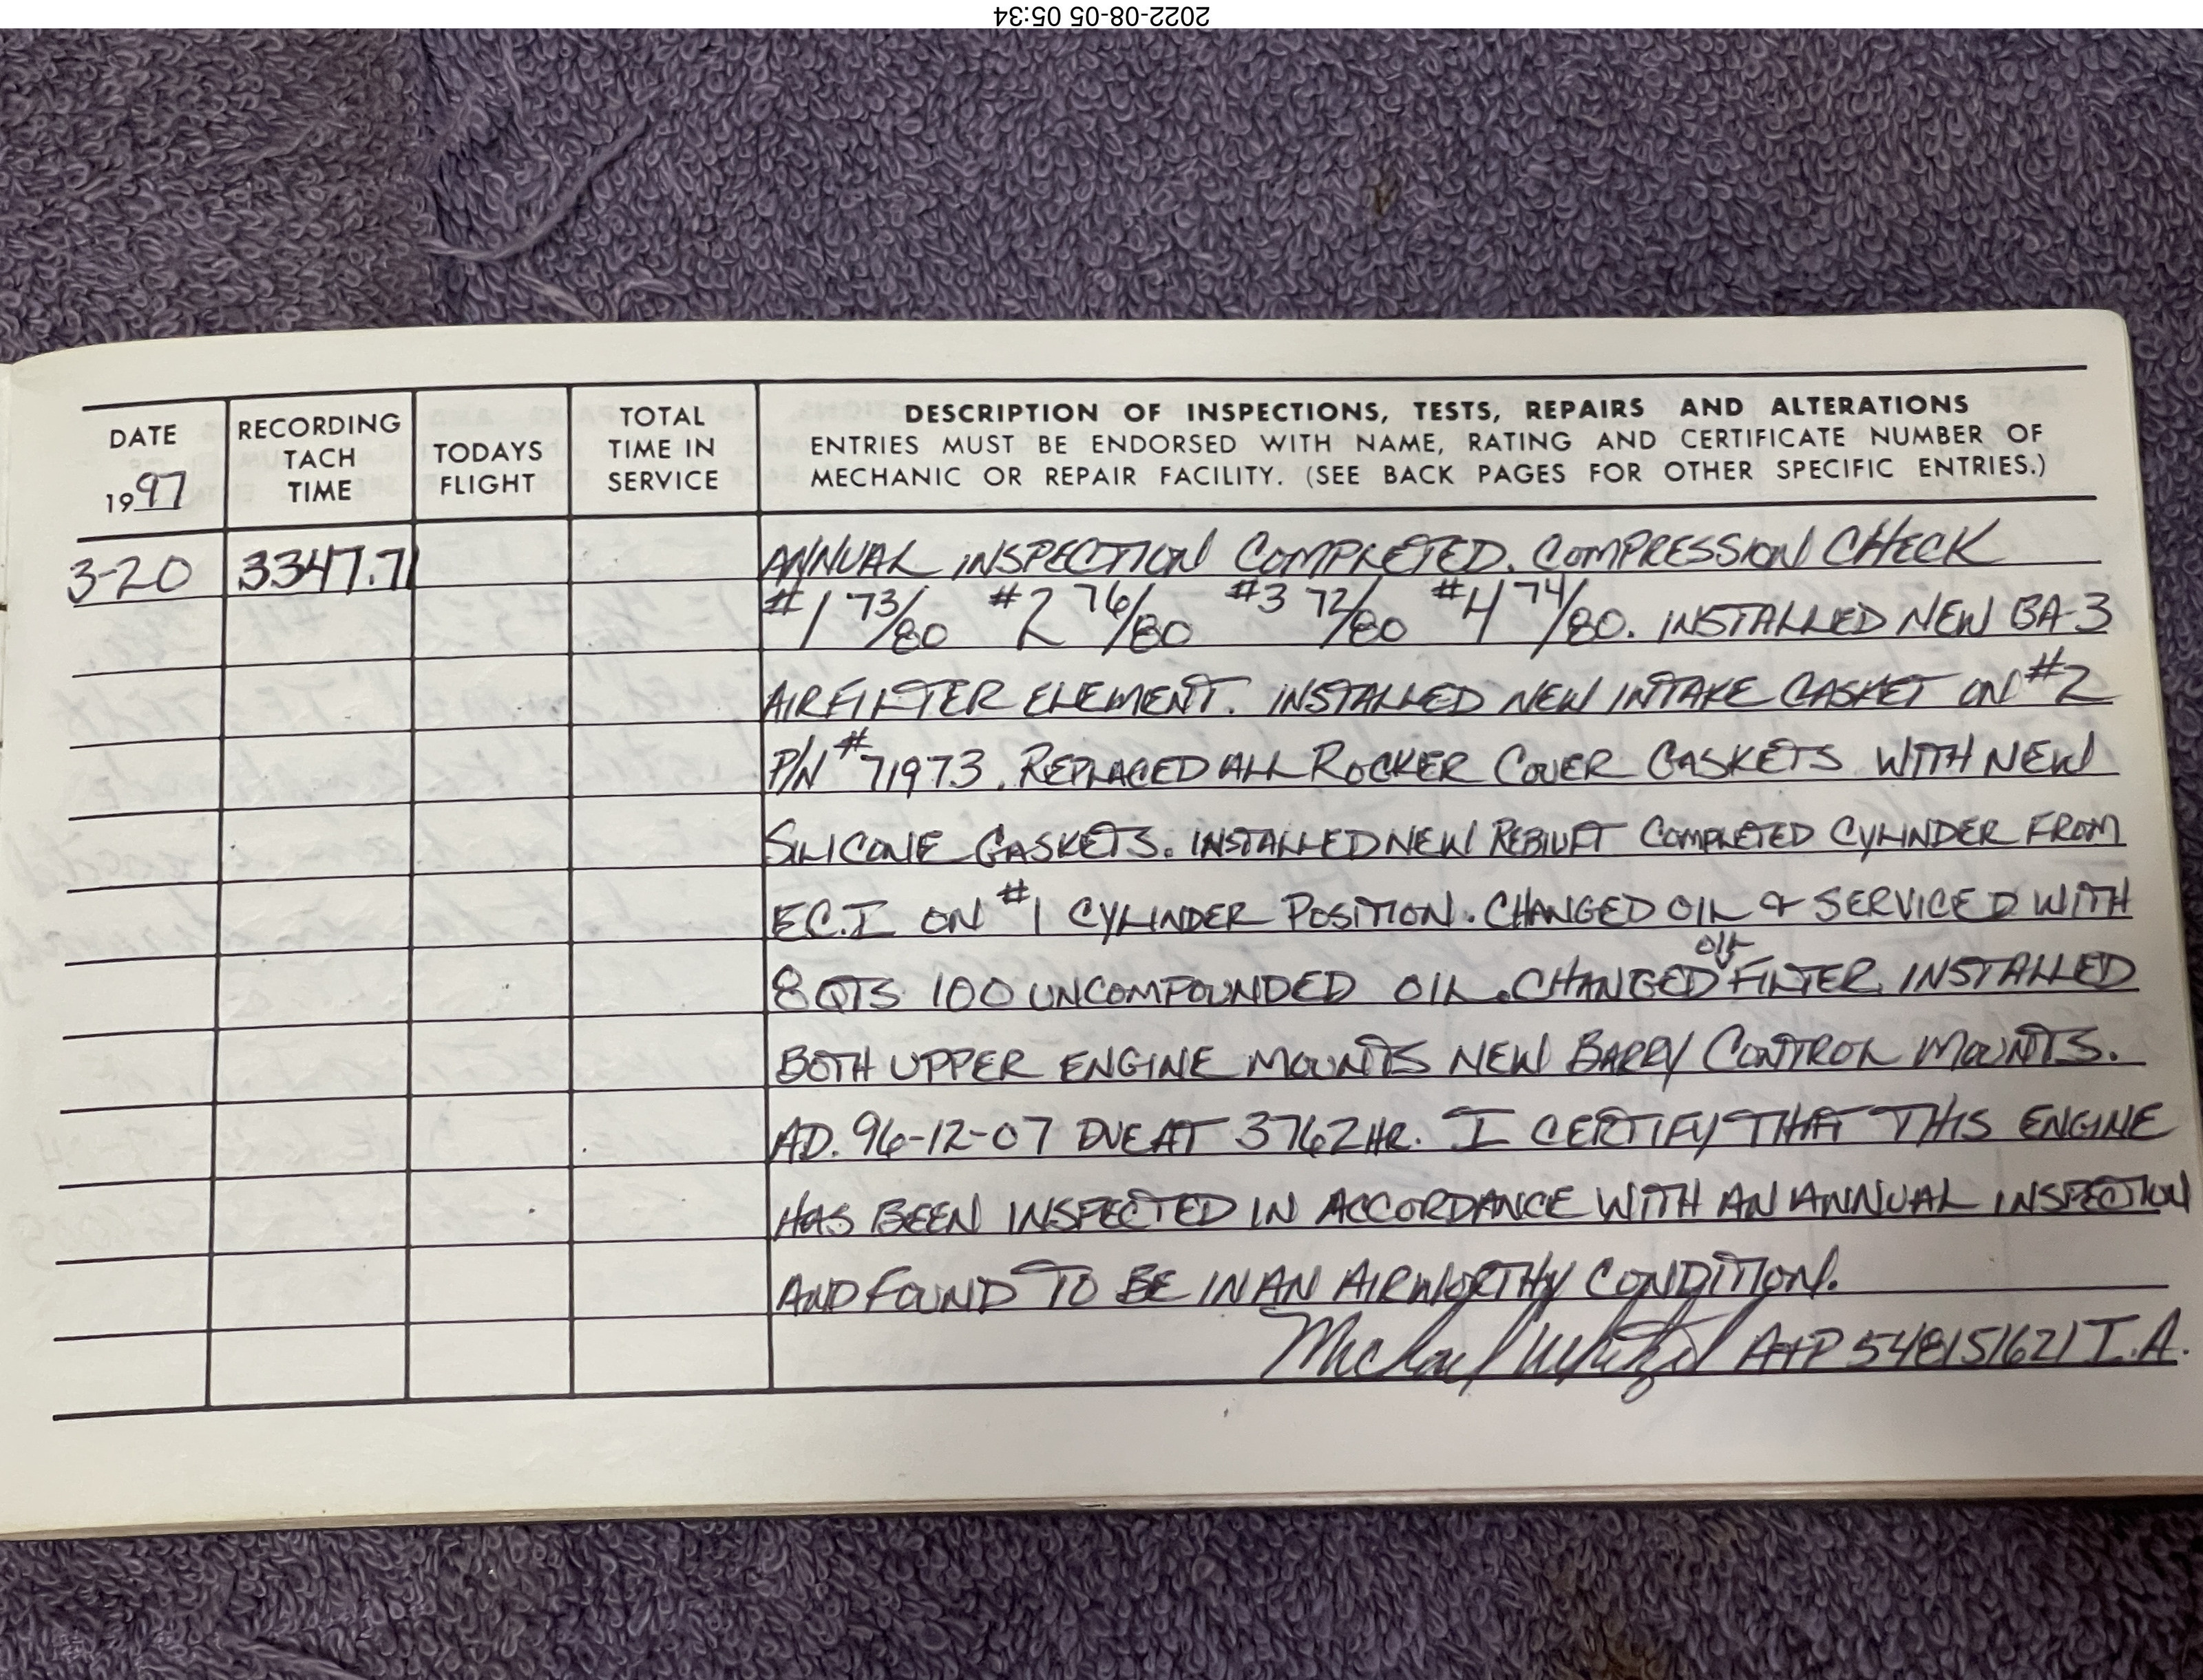 2022-08-05 05:34
DATE
1997
RECORDING
TACH
TIME
TODAYS
FLIGHT
TOTAL
TIME IN
SERVICE
DESCRIPTION OF INSPECTIONS, TESTS, REPAIRS AND ALTERATIONS
ENTRIES MUST BE ENDORSED WITH NAME, RATING AND CERTIFICATE NUMBER OF
MECHANIC OR REPAIR FACILITY. (SEE BACK PAGES FOR OTHER SPECIFIC ENTRIES.)
3-20 3347.71 ANNUAL INSPECTION COMPLETED. COMPRESSION CHECK
#1 73/80 #2 76/80 #3 72/80 #4 74/80. INSTALLED NEW BA-3
AIRFILTER ELEMENT. INSTALLED NEW INTAKE GASKET ON #2
P/N #71973. REPLACED ALL ROCKER COVER GASKETS WITH NEW
SILICONE GASKETS. INSTALLED NEW REBIULT COMPLETED CYLINDER FROM
E.C.I ON #1 CYLINDER POSITION. CHANGED OIL & SERVICED WITH
8 QTS 100 UNCOMPOUNDED OIL. CHANGED OIL FILTER. INSTALLED
BOTH UPPER ENGINE MOUNTS NEW BARRY CONTROL MOUNTS.
AD. 96-12-07 DUE AT 3762 HR. I CERTIFY THAT THIS ENGINE
HAS BEEN INSPECTED IN ACCORDANCE WITH AN ANNUAL INSPECTION
AND FOUND TO BE IN AN AIRWORTHY CONDITION.
Michael A+P 548151621 I.A.